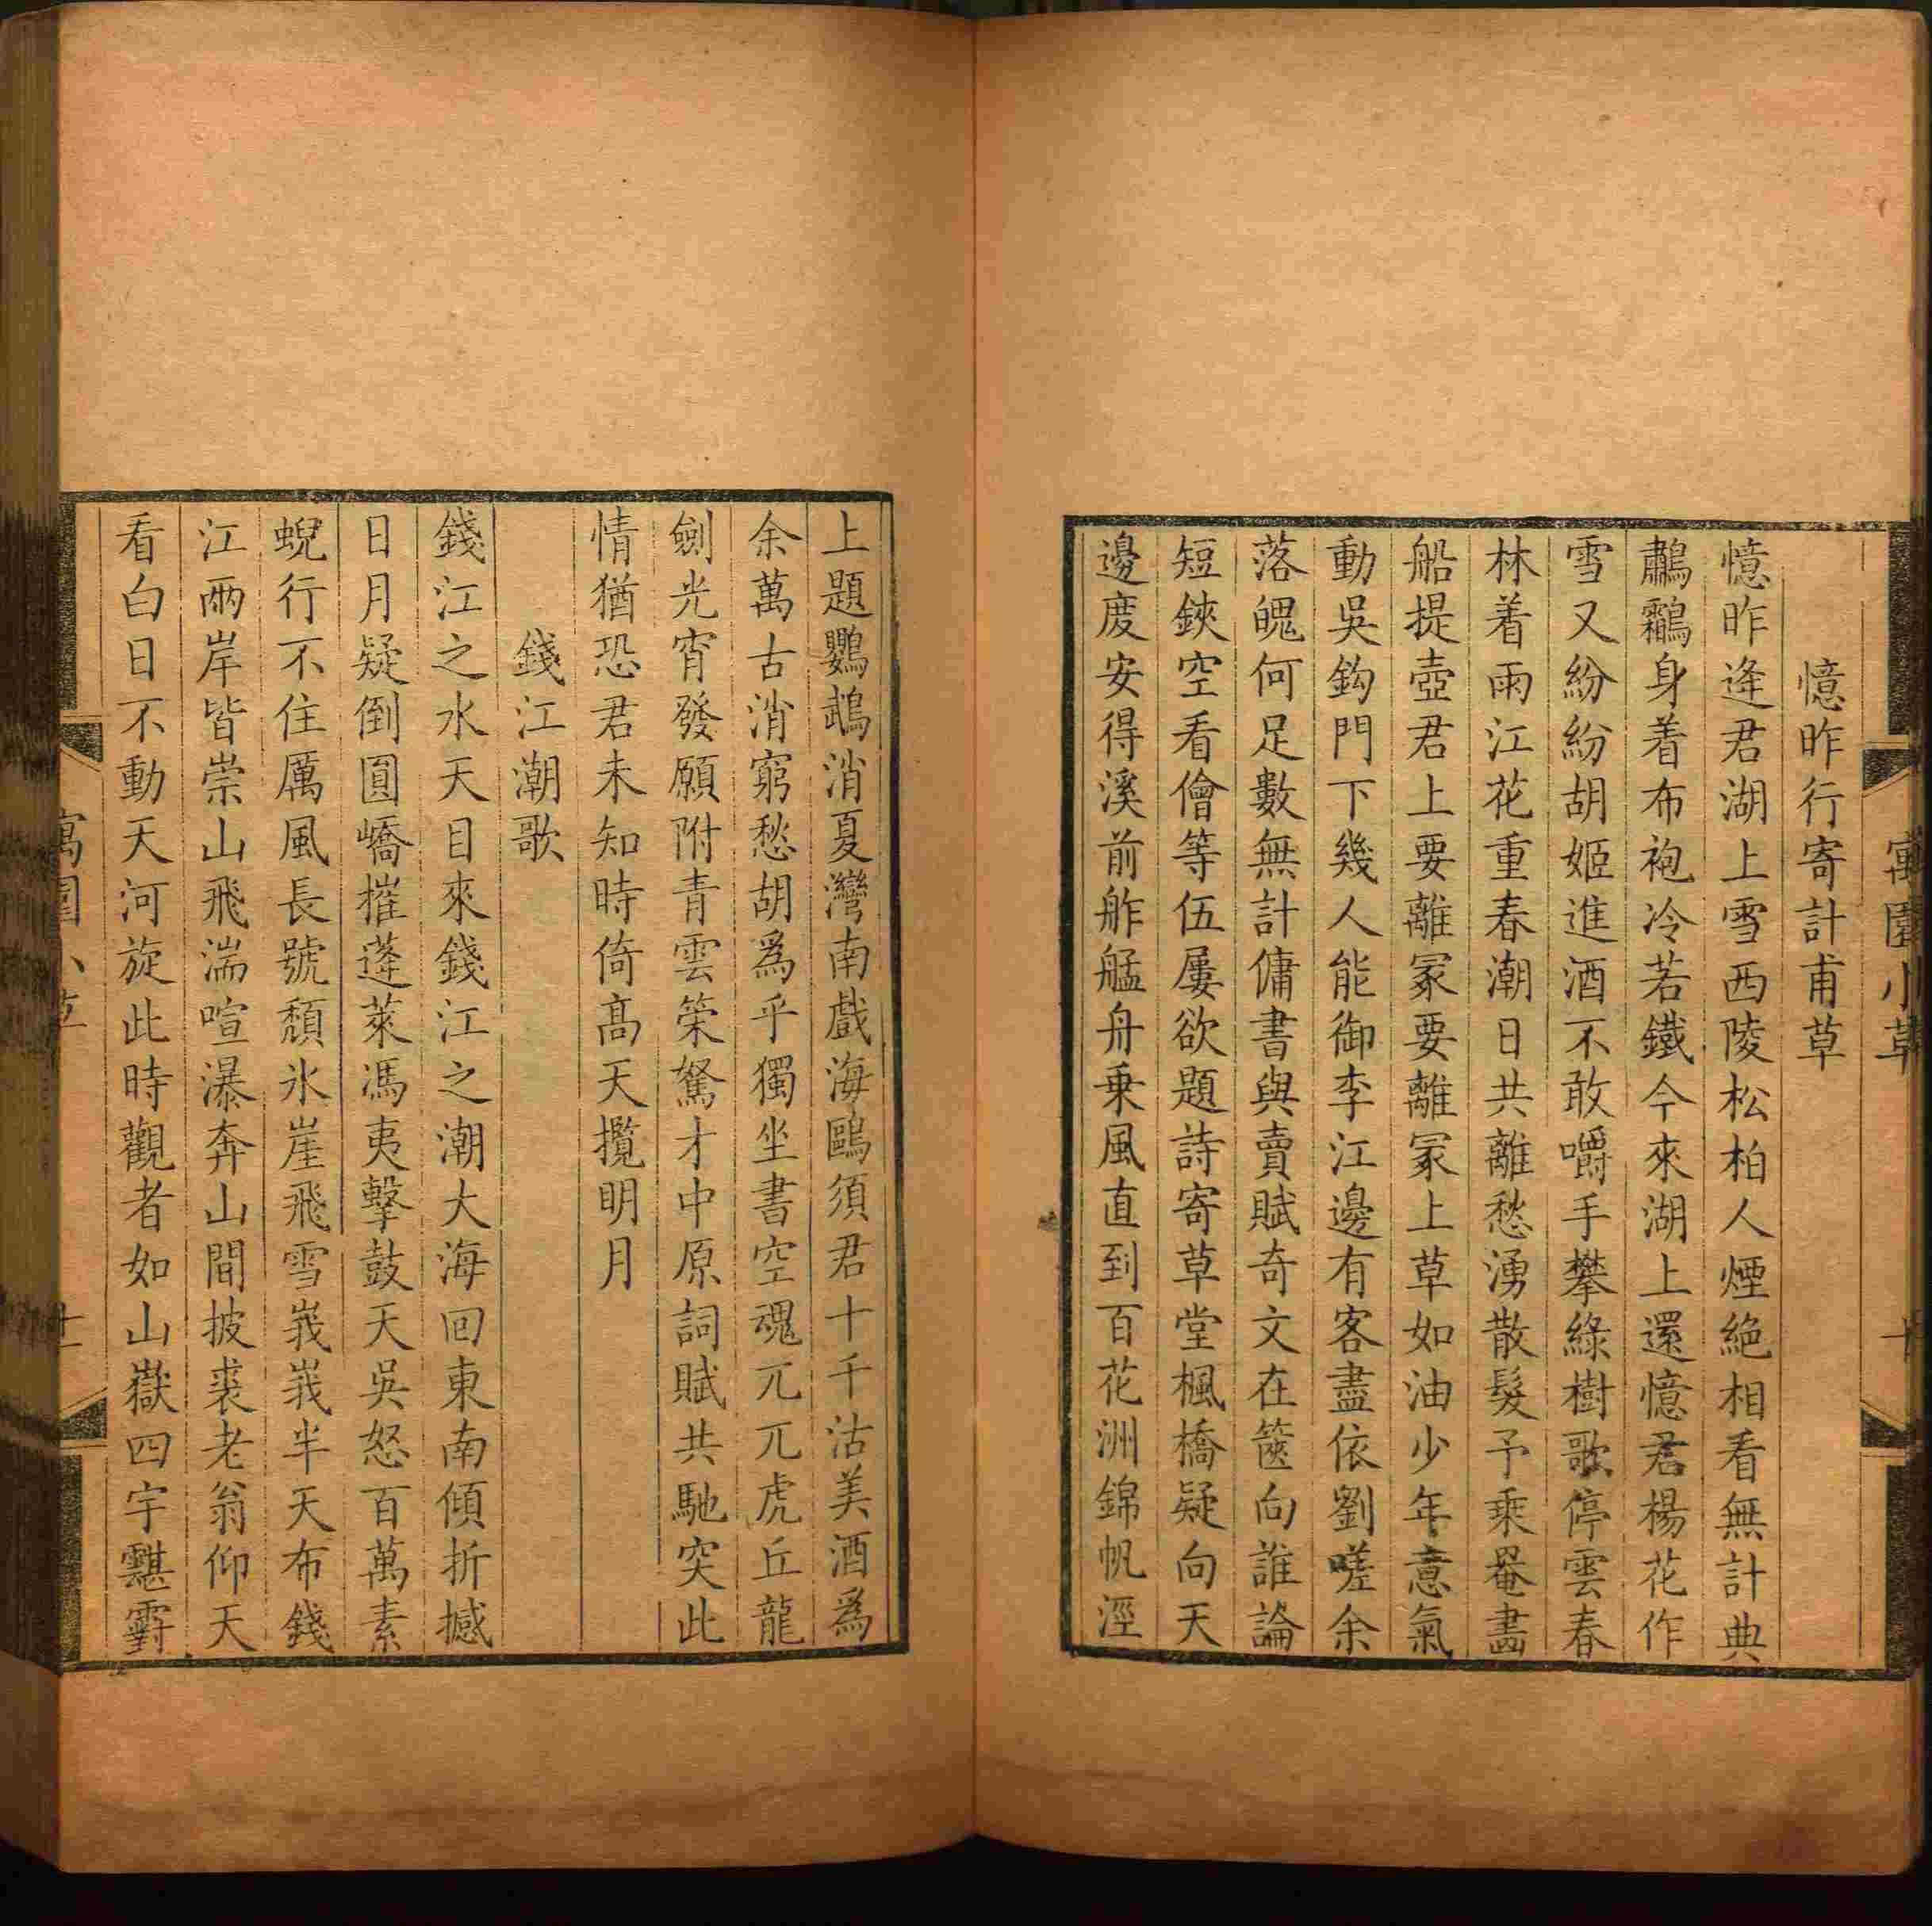 寓園小草
十
憶昨行寄計甫草
憶昨逢君湖上雪西陵松柏人煙絶相看無計典
鷫鸘身着布袍冷若鐵今來湖上還憶君楊花作
雪又紛紛胡姬進酒不敢嚼手攀綠樹歌停雲春
林着雨江花重春潮日共離愁湧散髮予乘罨畵
船提壺君上要離冢要離冢上草如油少年意氣
動吳鈎門下幾人能御李江邊有客盡依劉嗟余
落魄何足數無計傭書與賣賦奇文在篋向誰論
短鋏空看儈等伍屢欲題詩寄草堂楓橋疑向天
邊度安得溪前舴艋舟乗風直到百花洲錦帆涇
上題鸚鵡消夏灣南戲海鷗須君十千沽美酒為
余萬古消窮愁胡爲乎獨坐書空魂兀兀虎丘龍
劍光宵發願附青雲策駑才中原詞賦共馳突此
情猶恐君未知時倚高天攬明月
錢江潮歌
錢江之水天目來錢江之潮大海回東南傾折撼
日月疑倒圓嶠摧蓬萊馮夷擊鼓天吳怒百萬素
蜺行不住厲風長號頽氷崖飛雪峩峩半天布錢
江兩岸皆崇山飛湍喧瀑奔山間披裘老翁仰天
看白日不動天河旋此時觀者如山嶽四宇䨴霨
寓園小草
十一